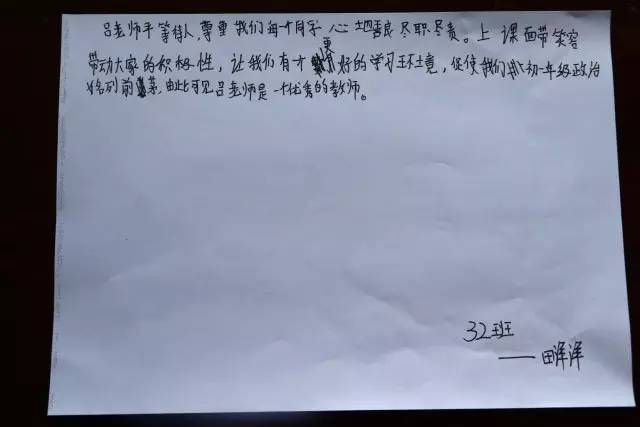 吕老师平等待人,尊重我们每一个同学 心地善良 尽职尽责。上课面带笑容
带动大家的积极性,让我们有一个更好的学习环境,促使我们班初一年级政治
名列前茅,由此可见吕老师是一个优秀的教师。
32班
——田洋洋